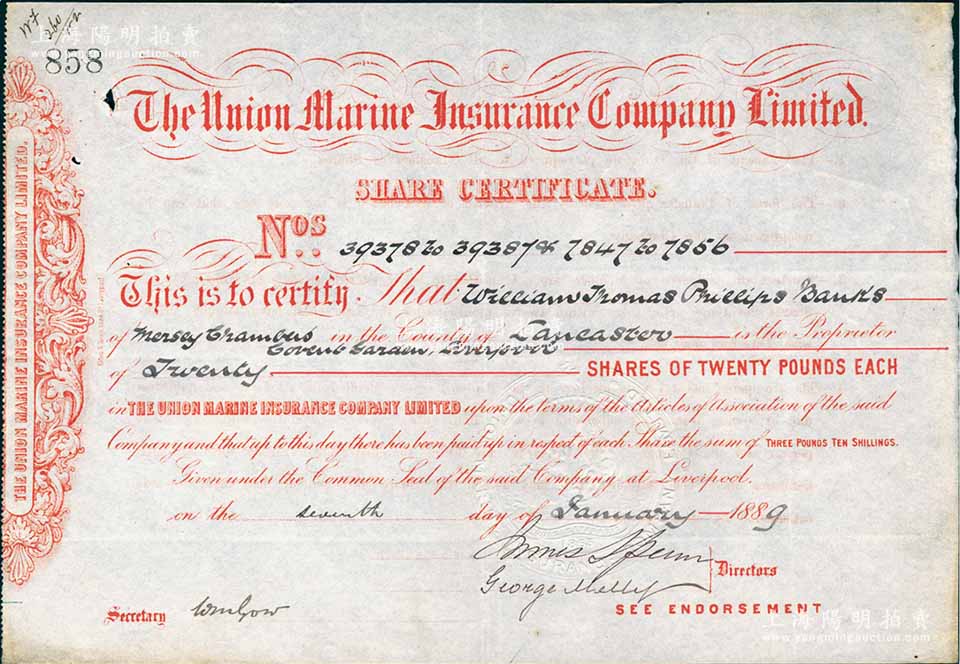 858
The Union Marine Insurance Company Limited.
SHARE CERTIFICATE.
Nos. 39378 to 39387 & 7847 to 7856
This is to certify That William Thomas Phillips Banks
of Mersey Chambers in the County of Lancaster is the Proprietor
Covent Garden, Liverpool
of Twenty SHARES OF TWENTY POUNDS EACH
in THE UNION MARINE INSURANCE COMPANY LIMITED upon the terms of the Articles of Association of the said
Company and that up to this day there has been paid up in respect of each Share the sum of THREE POUNDS TEN SHILLINGS.
Given under the Common Seal of the said Company at Liverpool.
on the seventh day of January 1889
George Melly
Directors
Secretary
SEE ENDORSEMENT
THE UNION MARINE INSURANCE COMPANY LIMITED.
上海陽明拍賣
www.yangmingauction.com
上海陽明拍賣
www.yangmingauction.com